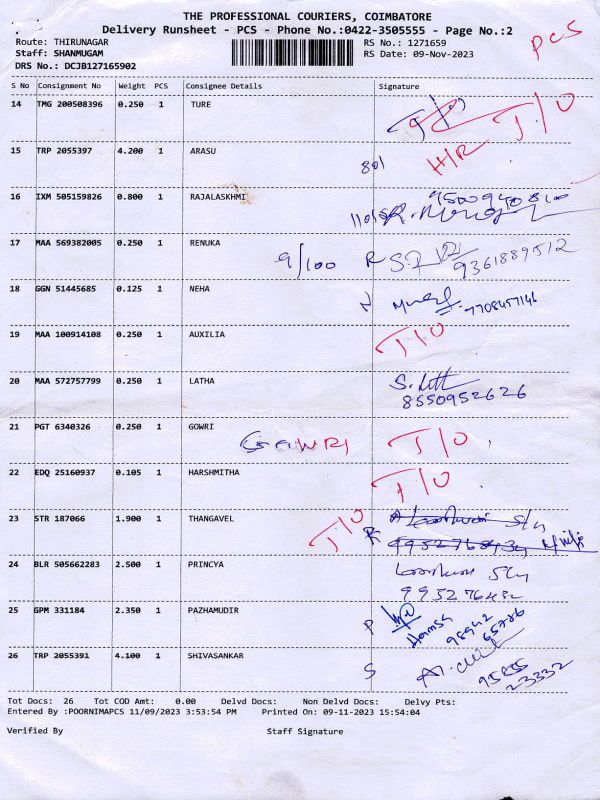 THE PROFESSIONAL COURIERS, COIMBATORE
Delivery Runsheet - PCS - Phone No.:0422-3505555 - Page No.:2
Route: THIRUNAGAR RS No.: 1271659 PCS
Staff: SHANMUGAM RS Date: 09-Nov-2023
DRS No.: DCJB127165902
S No Consignment No Weight PCS Consignee Details Signature
14 TMG 200508396 0.250 1 TURE T/O
15 TRP 2055397 4.200 1 ARASU 801 H/R
16 IXM 505159826 0.800 1 RAJALASKHMI
17 MAA 569382005 0.250 1 RENUKA 9/100 R 9361889512
18 GGN 51445685 0.125 1 NEHA 7708457146
19 MAA 100914108 0.250 1 AUXILIA T/O
20 MAA 572757799 0.250 1 LATHA
8550952626
21 PGT 6340326 0.250 1 GOWRI GOWRI T/O
22 EDQ 25160937 0.105 1 HARSHMITHA T/O
23 STR 187066 1.900 1 THANGAVEL T/O R
24 BLR 505662283 2.500 1 PRINCYA
25 GPM 331184 2.350 1 PAZHAMUDIR P Hamsa 98942 65786
26 TRP 2055391 4.100 1 SHIVASANKAR S 23332
Tot Docs: 26 Tot COD Amt: 0.00 Delvd Docs: Non Delvd Docs: Delvy Pts:
Entered By :POORNIMAPCS 11/09/2023 3:53:54 PM Printed On: 09-11-2023 15:54:04
Verified By Staff Signature